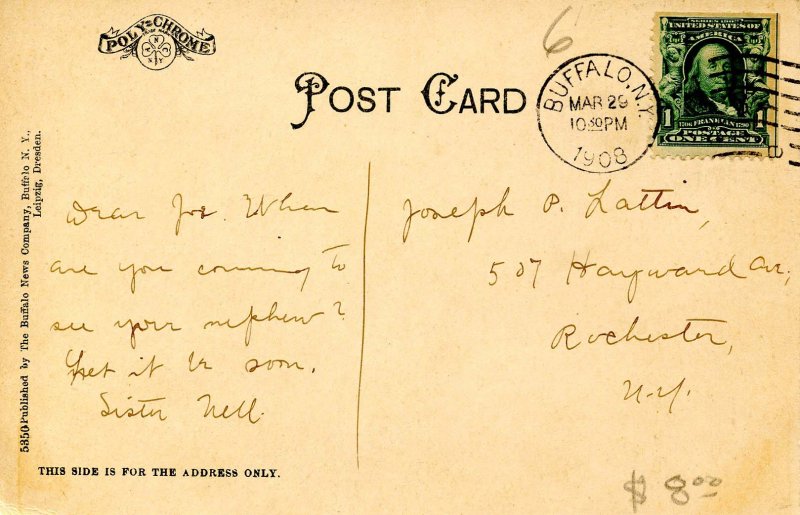 POLY-CHROME
N
N Y
POST CARD
6
BUFFALO, N.Y.
MAR 29
10 30 PM
1908
SERIES 1902
UNITED STATES OF
AMERICA
1 1
1706 FRANKLIN 1790
POSTAGE
ONE CENT
5350 Published by The Buffalo News Company, Buffalo N. Y.,
Leipzig, Dresden.
Dear Joe. When
are you coming to
see your nephew?
Let it be soon.
Sister Nell.
Joseph P. Lattin,
507 Hayward Av,
Rochester,
N.Y.
THIS SIDE IS FOR THE ADDRESS ONLY.
$ 8.00